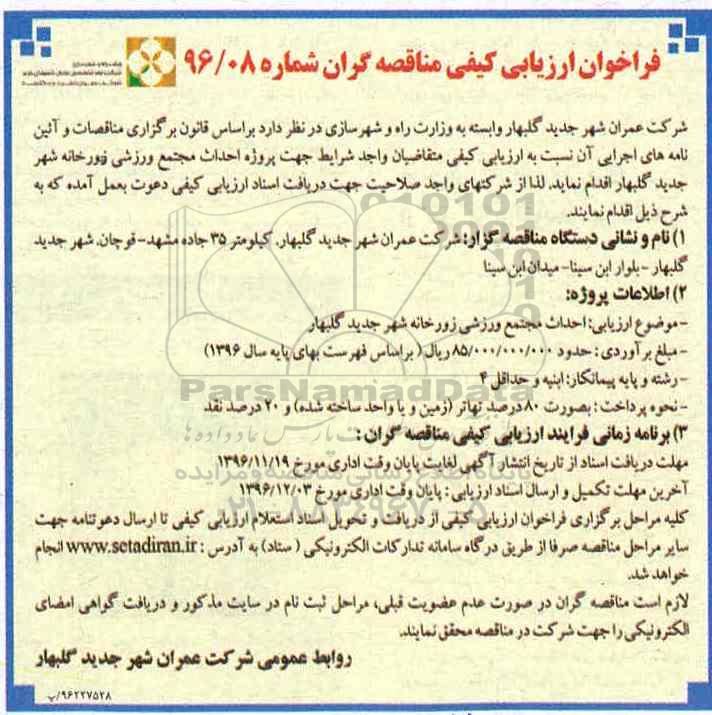 فراخوان ارزیابی کیفی مناقصه گران شماره ۹۶/۰۸
شرکت عمران شهر جدید گلبهار وابسته به وزارت راه و شهرسازی در نظر دارد براساس قانون برگزاری مناقصات و آئین
نامه های اجرایی آن نسبت به ارزیابی کیفی متقاضیان واجد شرایط جهت پروژه احداث مجتمع ورزشی زورخانه شهر
جدید گلبهار اقدام نماید. لذا از شرکتهای واجد صلاحیت جهت دریافت اسناد ارزیابی کیفی دعوت بعمل آمده که به
شرح ذیل اقدام نمایند.
۱) نام و نشانی دستگاه مناقصه گزار: شرکت عمران شهر جدید گلبهار. کیلومتر ۳۵ جاده مشهد- قوچان. شهر جدید
گلبهار - بلوار ابن سینا- میدان ابن سینا
۲) اطلاعات پروژه:
- موضوع ارزیابی: احداث مجتمع ورزشی زورخانه شهر جدید گلبهار
- مبلغ برآوردی : حدود ۸۵/۰۰۰/۰۰۰/۰۰۰ ریال ( براساس فهرست بهای پایه سال ۱۳۹۶)
- رشته و پایه پیمانکار: ابنیه و حداقل ۴
- نحوه پرداخت : بصورت ۸۰ درصد تهاتر (زمین و یا واحد ساخته شده) و ۲۰ درصد نقد
۳) برنامه زمانی فرایند ارزیابی کیفی مناقصه گران :
مهلت دریافت اسناد از تاریخ انتشار آگهی لغایت پایان وقت اداری مورخ ۱۳۹۶/۱۱/۱۹
آخرین مهلت تکمیل و ارسال اسناد ارزیابی : پایان وقت اداری مورخ ۱۳۹۶/۱۲/۰۳
کلیه مراحل برگزاری فراخوان ارزیابی کیفی از دریافت و تحویل اسناد استعلام ارزیابی کیفی تا ارسال دعوتنامه جهت
سایر مراحل مناقصه صرفا از طریق درگاه سامانه تدارکات الکترونیکی ( ستاد) به آدرس : www.setadiran.ir انجام
خواهد شد.
لازم است مناقصه گران در صورت عدم عضویت قبلی، مراحل ثبت نام در سایت مذکور و دریافت گواهی امضای
الکترونیکی را جهت شرکت در مناقصه محقق نمایند.
روابط عمومی شرکت عمران شهر جدید گلبهار
۹۶۲۲۷۵۲۸/پ
ParsNamadData